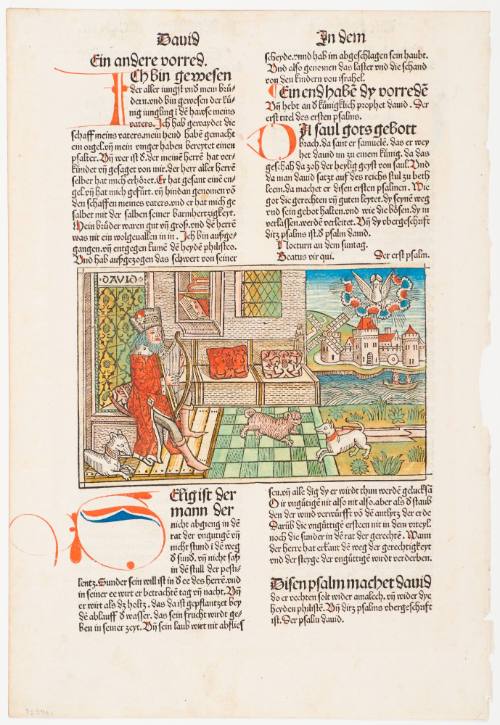 David
In dem
Ein andere vorred.
Ich bin gewesen
der aller iungst vnd mein brü-
dern.vnd bin gewesen der kü-
nig iungling i dē hawse meins
vaters. Ich hab geweydet die
schaff meins vaters.mein hend habē gemacht
ein orgel.vñ mein vinger haben bereytet einen
psalter. Vñ wer ist d̕.der meinē herrē hat ver-
kündet vñ gesaget von mir.der herr aller herrē
selber hat mich erhöret. Er hat gesant eine en-
gel.vñ hat mich gefürt.vñ hindan genomē võ
den schaffen meines vaters.vnd er hat mich ge
salbet mit der salben seiner barmhertzigkeyt.
Mein brüder waren gut vñ groß.vnd dē herrē
was nit ein wolgefallen in in. Ich bin außge-
gangen.vñ entgegen kumē dē heydē philisteo.
Vnd hab außgezogen das schwert von seiner
scheyde.vnnd hab im abgeschlagen sein haubt.
Vnd also genomen das laster vnd die schand
von den kindern von israhel.
Ein end habē dy vorredē
Vñ hebt an d̕ küniglich prophet dauid. Der
erst titel des ersten psalms.
Di saul gots gebott
brach.da sant er samuelē. das er wey
het dauid zu einem künig. da das
geschah.da zoh der heylig geyst von saul. Vnd
da man dauid satzt auf des reichs stul zu beth
leem.da machet er disen ersten psalmen. Wie
got die gerechten vñ guten leytet.dy seyne weg
vnd sein gebot halten.vnd wie die bösen.dy in
verlassen.werdē verleitet. Vñ dy vbergeschrift
ditz psalms ist.d̕ psalm dauid.
Nocturn an dem suntag.
Beatus vir qui. Der erst psalm.
DAVID
Selig ist der
mann der
nicht abgieng in dē
rat der vngütigē vñ
nicht stund i dē weg
d̕ sünd. vñ nicht saß
in dē stull der pesti-
lentz. Sunder sein will ist in d̕ ee des herrē.vnd
in seiner ee wirt er betrachtē tag vñ nacht. Vñ
er wirt als dz holtz. das da ist gepflantzet bey
dē ablauff d̕ wasser. das sein frucht wirdt ge-
ben in seiner zeyt. Vñ sein laub wirt nit abflies
sen.vñ alle dig dy er wirdt thun werdē gelucksā
O ir vngütigē nit also nit also.aber als d̕ staub
den der wind verwürfft võ dē antlytz der erdē
Darüb die vngütigē ersteen nit in dem vrteyl.
noch die sunder in dē rat der gerechtē. Wann
der herr hat erkāt dē weg der gerechtigkeyt
vnd der steyge der vngütigē wirdt verderben.
Disen psalm machet dauid
do er vechten solt wider amalech. vñ wider dye
heyden philistē. Vñ ditz psalms vbergeschrift
ist. Der psalm dauid.